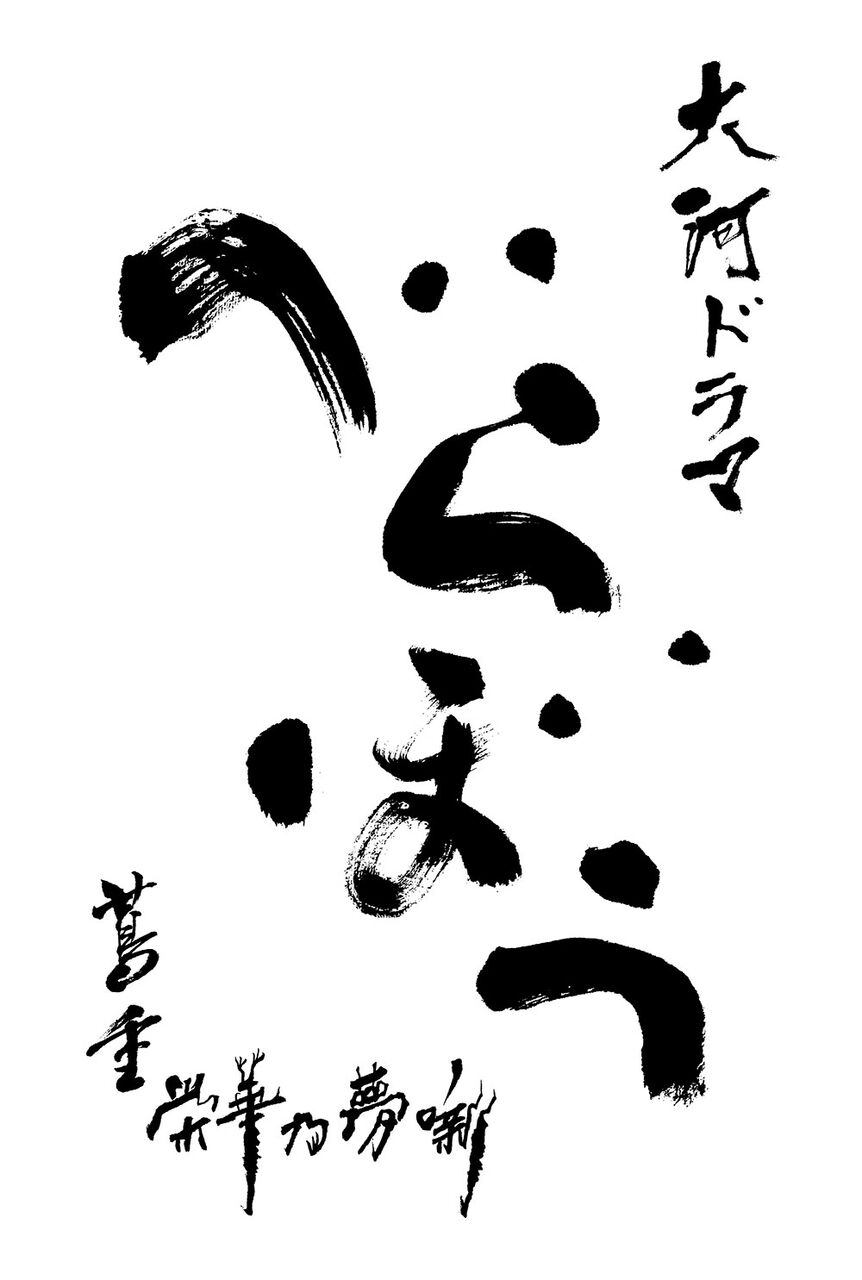 大河ドラマ
べらぼう
蔦重
榮華乃夢噺